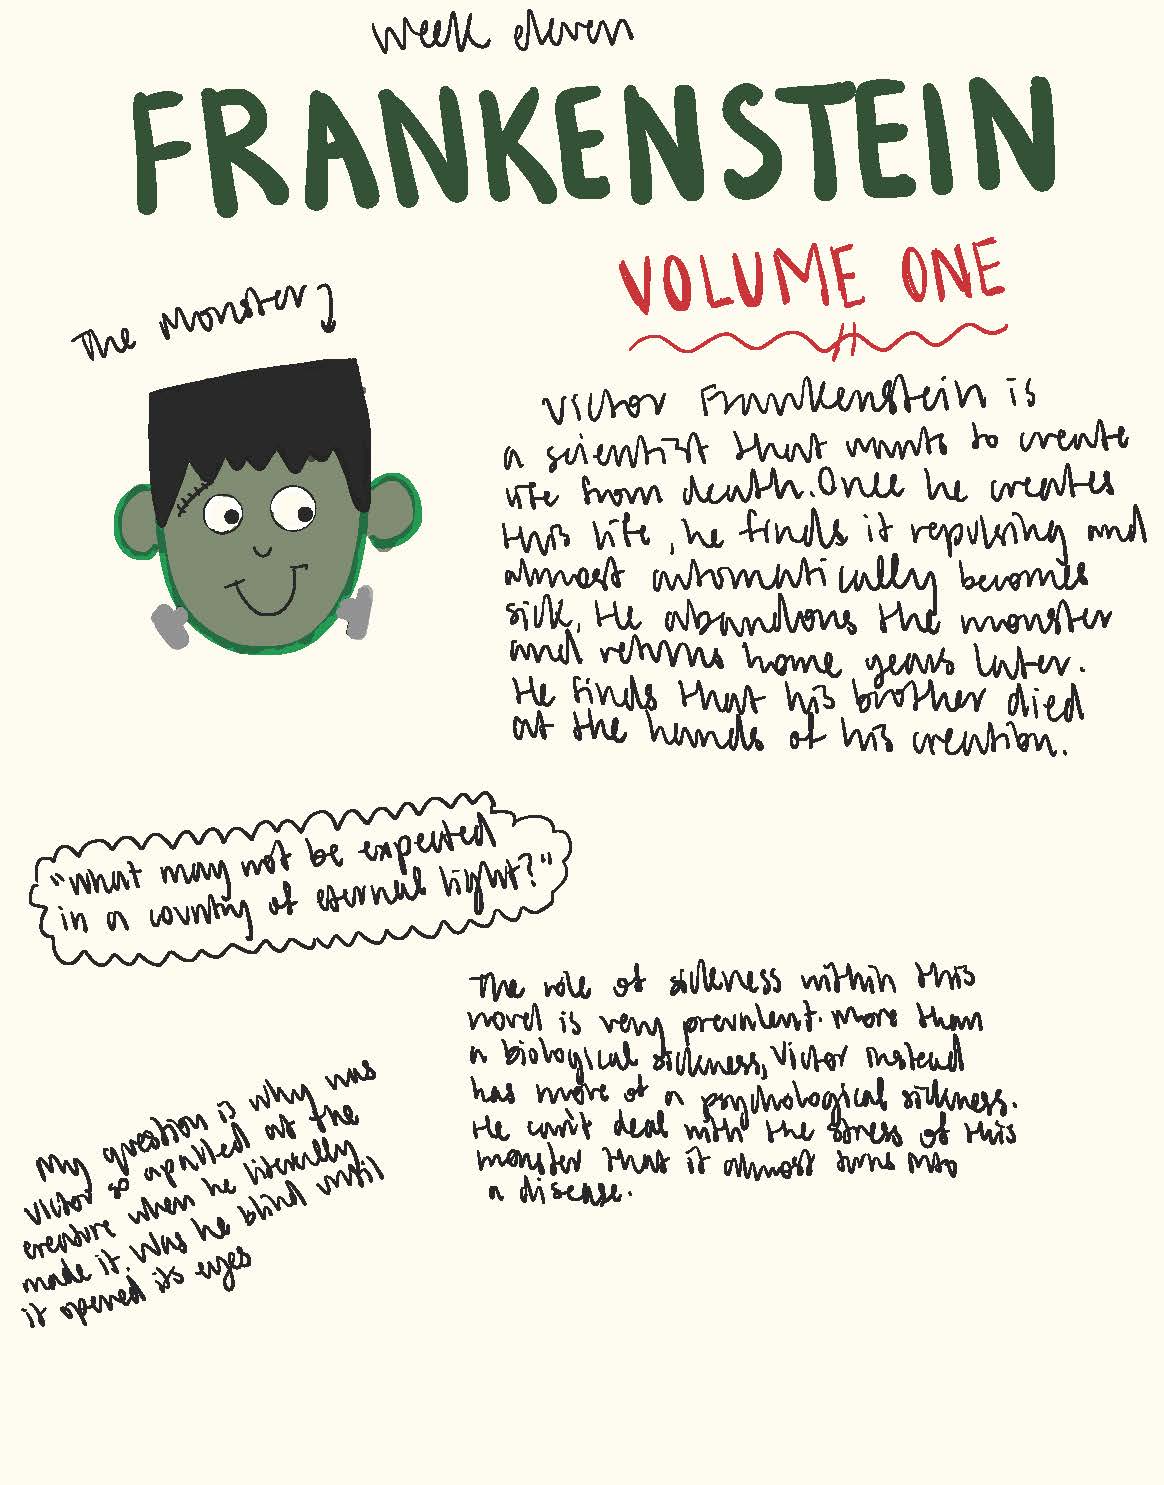 week eleven
FRANKENSTEIN
VOLUME ONE
The Monster
Victor Frankenstein is
a scientist that wants to create
life from death. Once he creates
this life, he finds it repulsing and
almost automatically becomes
sick. He abandons the monster
and returns home years later.
He finds that his brother died
at the hands of his creation.
"What may not be expected
in a country of eternal light?"
The role of sickness within this
novel is very prevalent. More than
a biological sickness, Victor instead
has more of a psychological sickness.
He can't deal with the stress of this
monster that it almost turns into
a disease.
My question is why was
Victor so apalled at the
creature when he literally
made it. Was he blind until
it opened its eyes